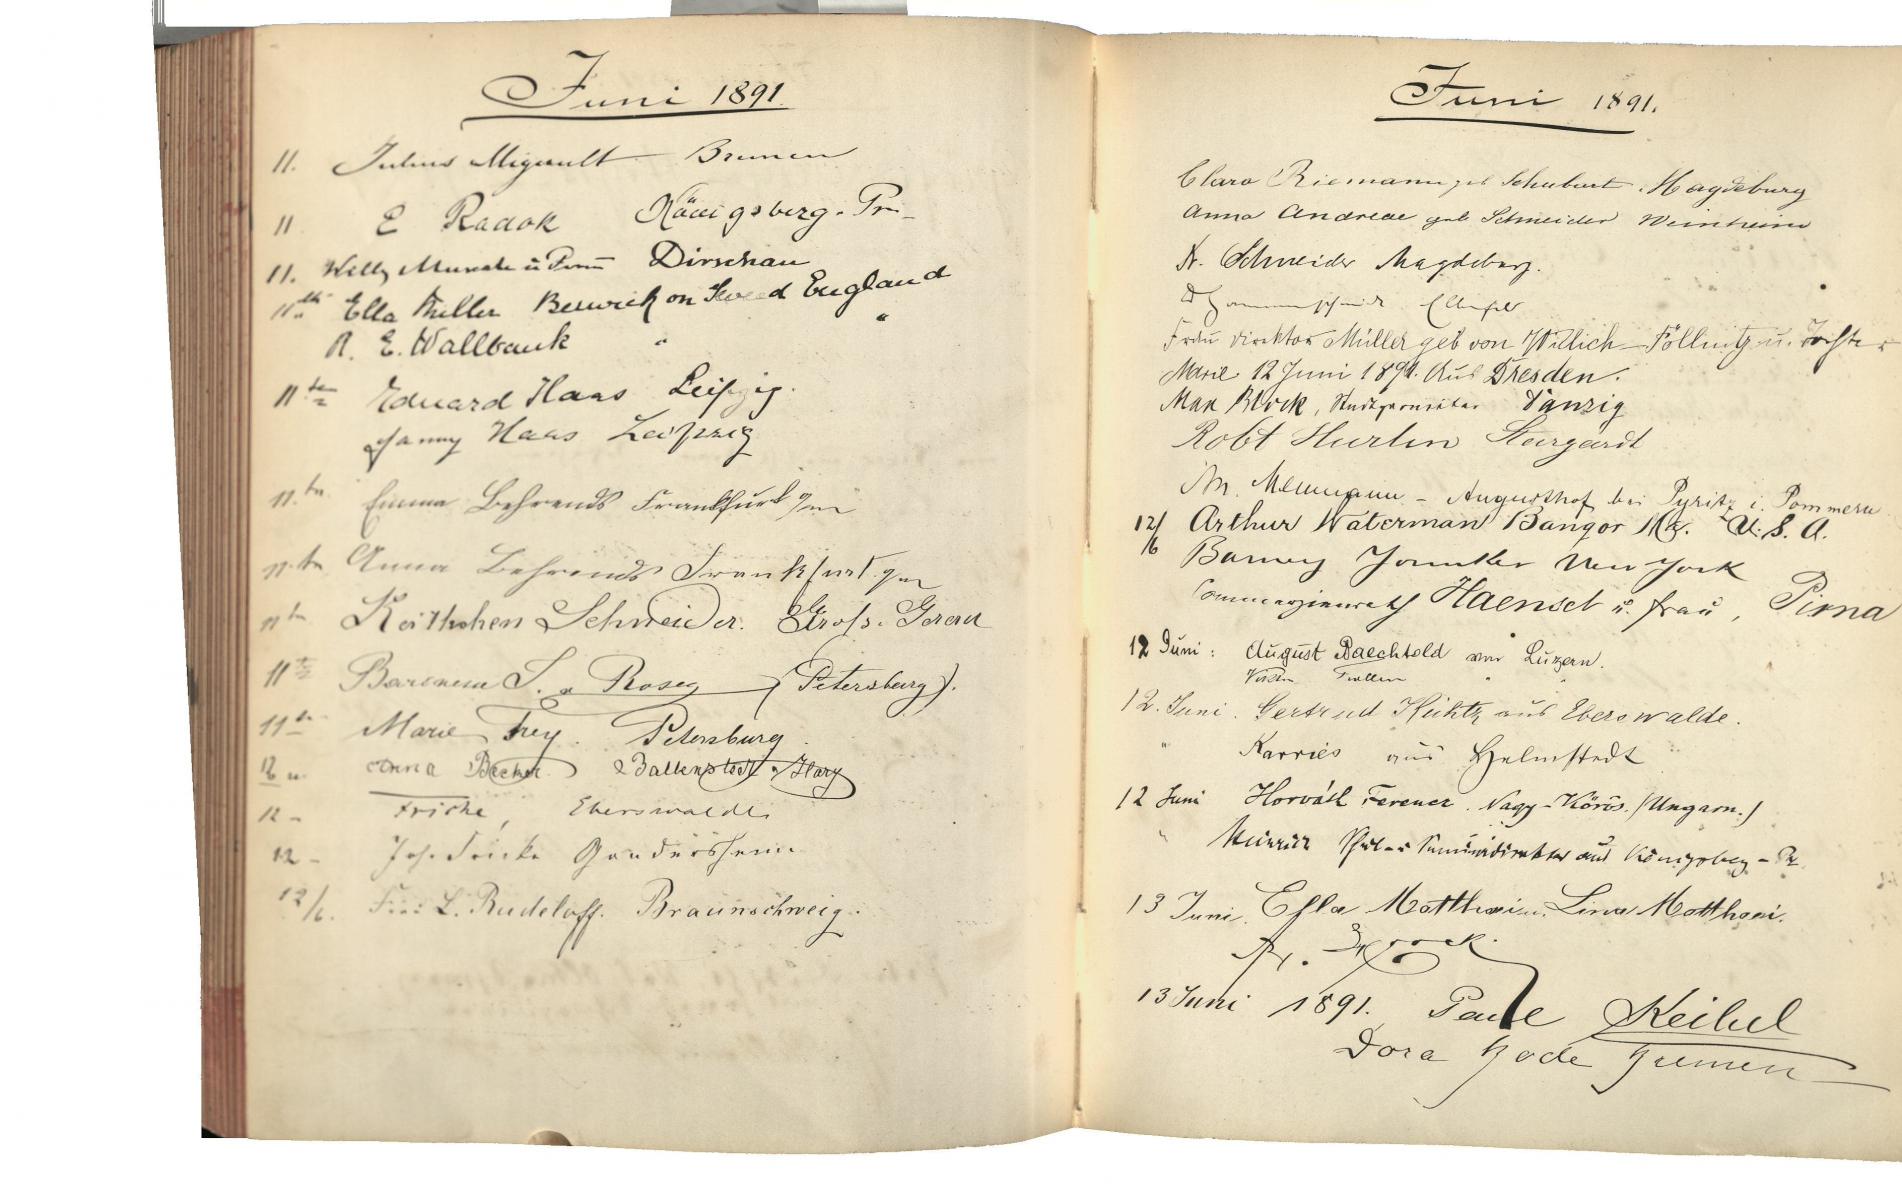 Juni 1891
11. Julius Migault Bremen
11 E Radok Königsberg. Pr.
11. Willy u Frau Dirschau
11th Ella Miller Berwick on Tweed England
R. E. Wallbank " "
11ten Eduard Haas Leipzig.
Fanny Haas Leipzig
11.tn Emma Behrends Frankfurt a/m
11.tn Anna Behrends Frankfurt a/m
11tn Schneider. Groß-Gerau
11te Baronesse S. v Rosen (Petersburg).
11te Marie Frey. Petersburg.
12 Anna Becker Ballenstedt a/Harz
12 - Fricke, Eberswalde
12 - Joh. Fricke Gandersheim
12/6. Frau L. Rudeloff. Braunschweig.
Juni 1891.
Clara Riemann geb Schubert. Magdeburg
Anna Andreae geb Schneider Weinheim
A. Schneider Magdeburg.
Frau Direktor Müller geb von Willich u. Tochter
Marie 12 Juni 1891. Aus Dresden.
Max Block, Danzig
Robt Stargardt
Augusthof bei Pyritz i. Pommern
12/6 Arthur Waterman Bangor Me. U.S.A.
Barney New York
Commerzienrath Haensel u. Frau, Pirna
12 Juni: August Baechtold von Luzern.
" "
12. Juni. Gertrud aus Eberswalde.
" Karries aus Helmstedt
12 Juni Horváth Ferencz. Nagy-Körös. (Ungarn.)
" Seminardirektor aus Königsberg - Pr.
13 Juni. Ella Matthaei u. Lina Matthaei.
13 Juni 1891. Paul Keibel
Dora Bode Bremen